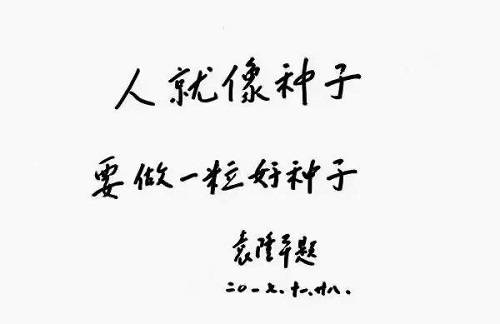 人就像种子
要做一粒好种子
袁隆平题
二〇一七.十一.廿八.